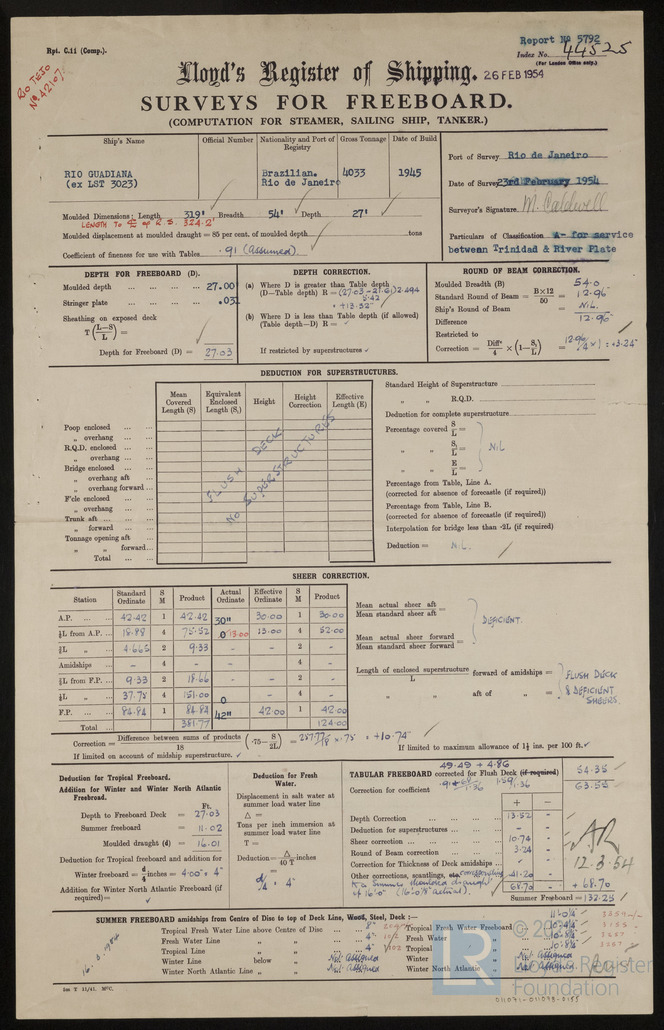 Rpt. C.11 (Comp.).
Report No 5792
Index No. 44525
(For London Office only.)
RIO TEJO
No. 42107
Lloyd's Register of Shipping.
26 FEB 1954
SURVEYS FOR FREEBOARD.
(COMPUTATION FOR STEAMER, SAILING SHIP, TANKER.)
Ship's Name Official Number Nationality and Port of Registry Gross Tonnage Date of Build
RIO GUADIANA Brazilian. 4033 1945
(ex LST 3023) Rio de Janeiro
Port of Survey Rio de Janeiro
Date of Survey 23rd February 1954
Surveyor's Signature M. Caldwell
Particulars of Classification A- for service
between Trinidad & River Plate
Moulded Dimensions: Length 319' Breadth 54' Depth 27'
LENGTH TO ₵ of R.S. 324.2'
Moulded displacement at moulded draught = 85 per cent. of moulded depth tons
Coefficient of fineness for use with Tables .91 (assumed)
DEPTH FOR FREEBOARD (D).
Moulded depth 27.00
Stringer plate .03
Sheathing on exposed deck
T (L—S/L) =
Depth for Freeboard (D) = 27.03
DEPTH CORRECTION.
(a) Where D is greater than Table depth
(D—Table depth) R = (27.03-21.61) 2.494
5.42
+13.52"
(b) Where D is less than Table depth (if allowed)
(Table depth—D) R =
If restricted by superstructures
ROUND OF BEAM CORRECTION.
Moulded Breadth (B) 54.0
Standard Round of Beam = B×12/50 = 12.96
Ship's Round of Beam = NIL.
Difference 12.96
Restricted to
Correction = Diff/4 × (1—S₁/L) = 12.96/4 × 1 = +3.24"
DEDUCTION FOR SUPERSTRUCTURES.
Mean Covered Length (S) Equivalent Enclosed Length (S₁) Height Height Correction Effective Length (E)
Poop enclosed
„ overhang
R.Q.D. enclosed
„ overhang
Bridge enclosed
„ overhang aft
„ overhang forward
F'cle enclosed
„ overhang
Trunk aft
„ forward
Tonnage opening aft
„ „ forward
Total
FLUSH DECK
NO SUPERSTRUCTURES
Standard Height of Superstructure
„ „ R.Q.D.
Deduction for complete superstructure
Percentage covered S/L =
„ „ S₁/L =
„ „ E/L =
NIL
Percentage from Table, Line A.
(corrected for absence of forecastle (if required))
Percentage from Table, Line B.
(corrected for absence of forecastle (if required))
Interpolation for bridge less than ·2L (if required)
Deduction = NIL.
SHEER CORRECTION.
Station Standard Ordinate S M Product Actual Ordinate Effective Ordinate S M Product
A.P. 42.42 1 42.42 30" 30.00 1 30.00
⅙L from A.P. 18.88 4 75.52 0 13.00 13.00 4 52.00
⅓L „ 4.665 2 9.33 - 2 -
Amidships - 4 - - 4 -
⅓L from F.P. 9.33 2 18.66 - 2 -
⅙L „ 37.75 4 151.00 0 4 -
F.P. 84.84 1 84.84 42" 42.00 1 42.00
Total 381.77 124.00
Mean actual sheer aft
Mean standard sheer aft =
Mean actual sheer forward
Mean standard sheer forward =
DEFICIENT.
Length of enclosed superstructure forward of amidships =
L
„ aft of „ =
FLUSH DECK
& DEFICIENT
SHEERS.
Correction = Difference between sums of products/18 (·75— S/2L) = 257.77/18 × .75 = +10.74"
If limited on account of midship superstructure.
If limited to maximum allowance of 1½ ins. per 100 ft.
Deduction for Tropical Freeboard.
Addition for Winter and Winter North Atlantic Freeboard.
Ft.
Depth to Freeboard Deck = 27.03
Summer freeboard = 11.02
Moulded draught (d) = 16.01
Deduction for Tropical freeboard and addition for
Winter freeboard = d/4 inches = 4.00" = 4"
Addition for Winter North Atlantic Freeboard (if required) =
Deduction for Fresh Water.
Displacement in salt water at summer load water line
Δ =
Tons per inch immersion at summer load water line
T =
Deduction = Δ/40 T inches
d/4 = 4"
49.49 + 4.86
TABULAR FREEBOARD corrected for Flush Deck (if required) 54.35
Correction for coefficient .91 + .68/1.36 1.59/1.36 63.55
+ —
Depth Correction 13.52
Deduction for superstructures - -
Sheer correction 10.74
Round of Beam correction 3.24
Correction for Thickness of Deck amidships
Other corrections, scantlings, etc. corresponding 41.20
to a Summer moulded draught
of 16'-0" (16'-0⅛" actual).
68.70 + 68.70
Summer Freeboard = 132.25
AR
12.3.54
SUMMER FREEBOARD amidships from Centre of Disc to top of Deck Line, Wood, Steel, Deck :—
Tropical Fresh Water Line above Centre of Disc 8"
Fresh Water Line „ „ 4"
Tropical Line „ „ 4"
Winter Line below „ Not Assigned
Winter North Atlantic Line „ „ Not Assigned
11'-0¼"
Tropical Fresh Water Freeboard 10'-4¼"
Fresh Water „ 10'-8¼"
Tropical „ 10'-8¼"
Winter „ Not Assigned
Winter North Atlantic „ Not Assigned
16.3.1954
5m T 11/41. MᶜC.
LR
Lloyd's Register
Foundation
011071-011093-0155